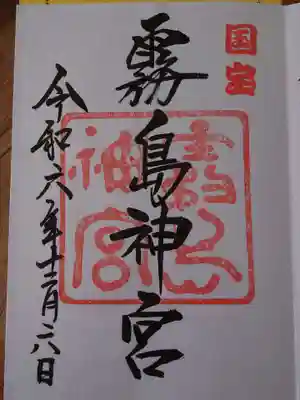 国宝
霧島神宮
霧島神宮
令和六年十二月二八日